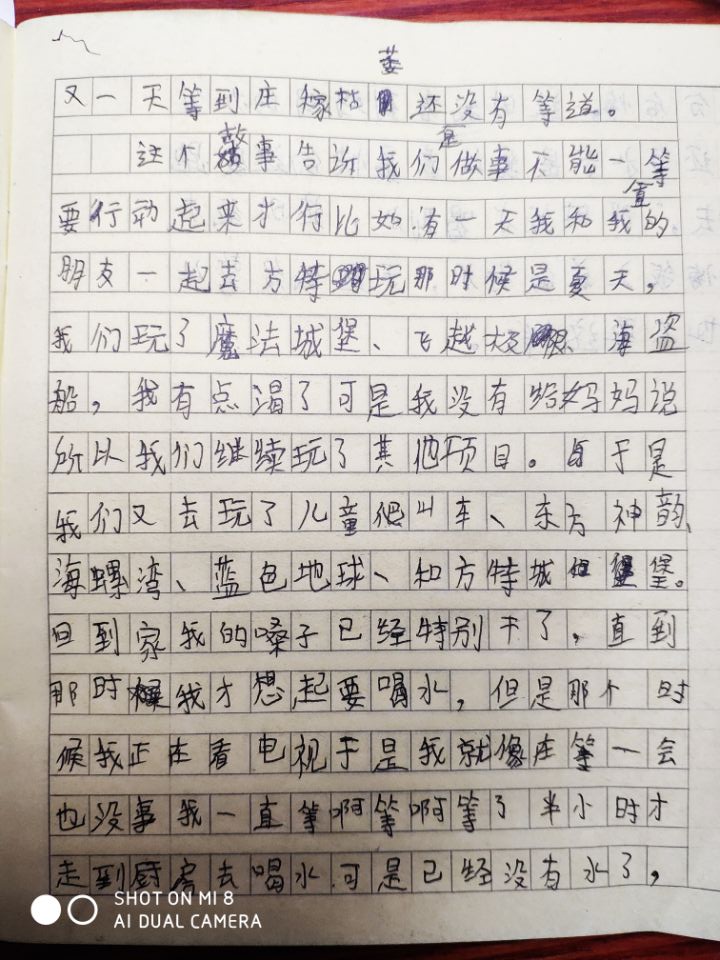 又一天等到庄稼枯萎还没有等道。
这个故事告诉我们做事不能一直等
要行动起来才行比如有一天我和我的
朋友一起去方特玩那时候是夏天,
我们玩了魔法城堡、飞越极限海盗
船,我有点渴了可是我没有给妈妈说
所以我们继续玩了其他项目。于是
我们又去玩了儿童爬山车、东方神韵、
海螺湾、蓝色地球、和方特城堡。
回到家我的嗓子已经特别干了,直到
那时候我才想起要喝水,但是那个时
候我正在看电视于是我就像在等一会
也没事我一直等啊等啊等了半小时才
走到厨房去喝水可是已经没有水了,
SHOT ON MI 8
AI DUAL CAMERA